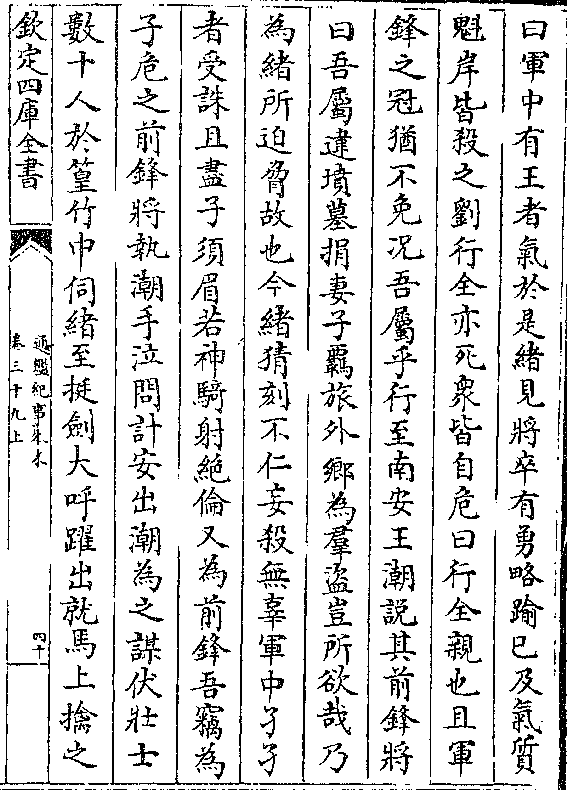 曰軍中有王者氣於是緒見將卒有勇略踰已及氣質
魁岸皆殺之劉行全亦死衆皆自危曰行全親也且軍
鋒之冠猶不免况吾屬乎行至南安王潮説其前鋒將
曰吾屬違墳墓捐妻子羈旅外鄉為羣盗豈所欲哉乃
為緒所迫脅故也今緒猜刻不仁妄殺無辜軍中孑孑
者受誅且盡子須眉若神騎射絶倫又為前鋒吾竊為
子危之前鋒將執潮手泣問計安出潮為之謀伏壯士
數十人於篁竹中伺緒至挺劍大呼躍出就馬上擒之
欽定四庫全書
通鑑紀事本末
卷三十九上
四十